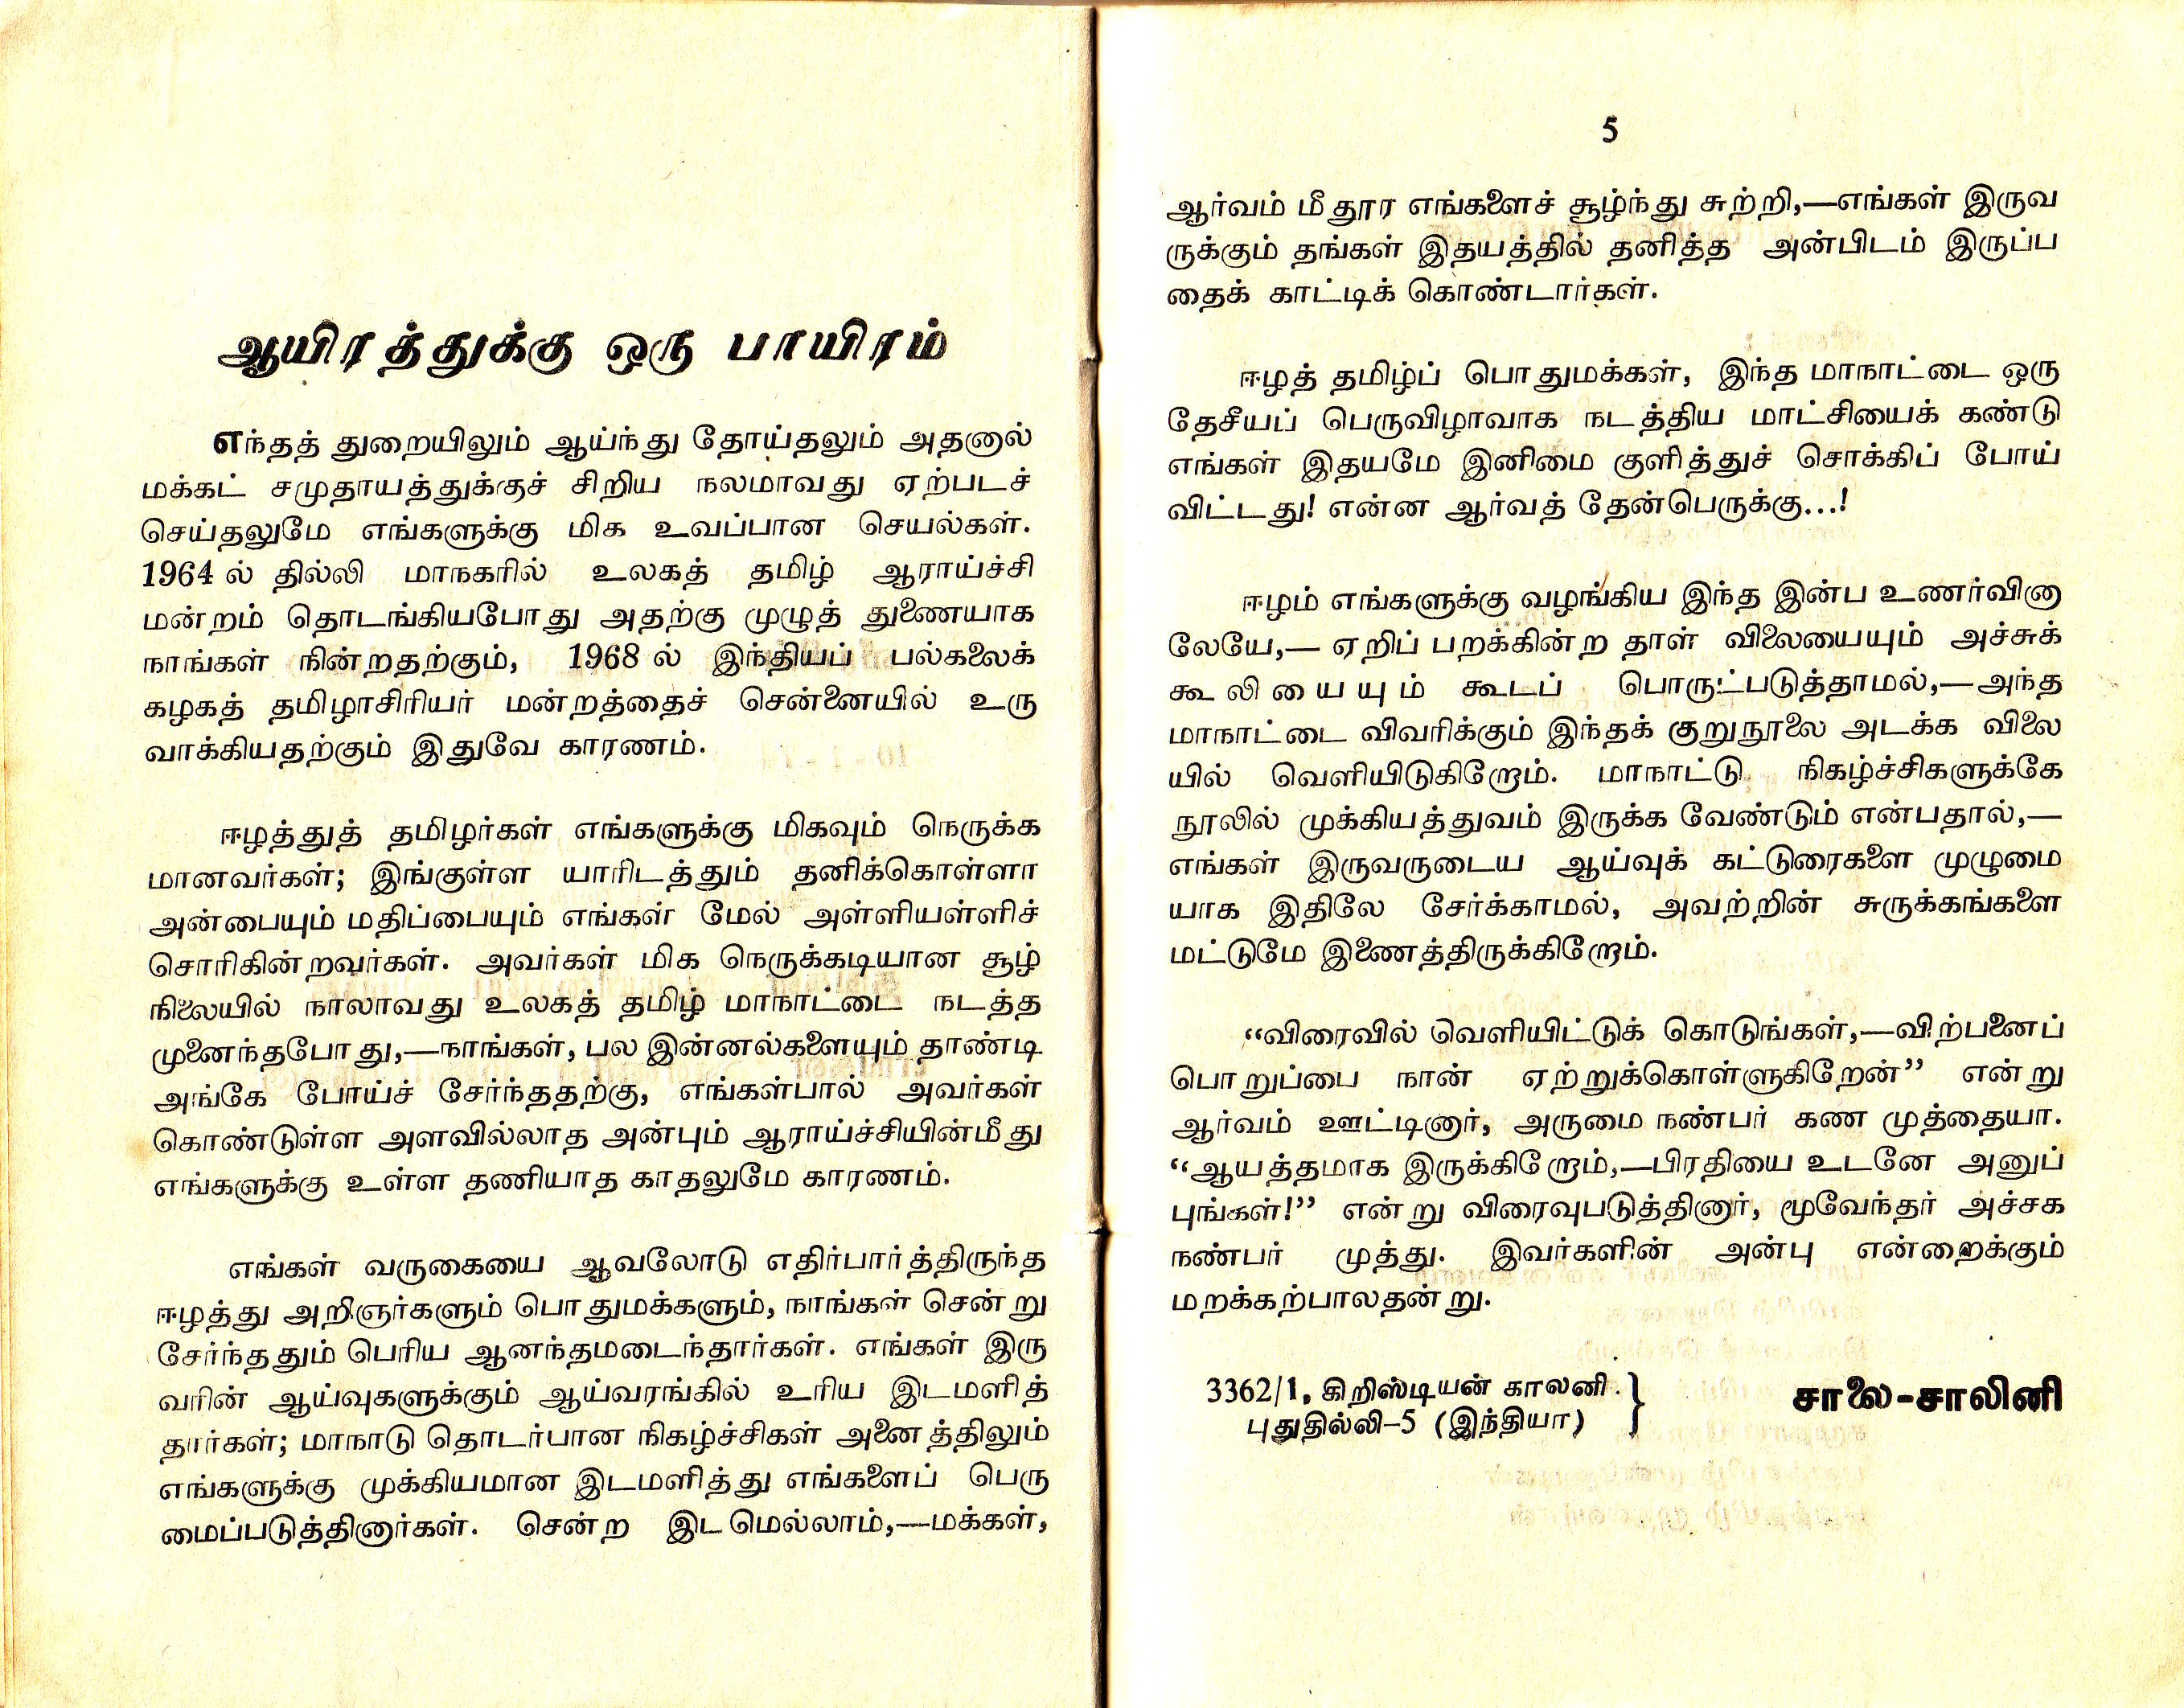 ஆயிரத்துக்கு ஒரு பாயிரம்
எந்தத் துறையிலும் ஆய்ந்து தோய்தலும் அதனால்
மக்கட் சமுதாயத்துக்குச் சிறிய நலமாவது ஏற்படச்
செய்தலுமே எங்களுக்கு மிக உவப்பான செயல்கள்.
1964 ல் தில்லி மாநகரில் உலகத் தமிழ் ஆராய்ச்சி
மன்றம் தொடங்கியபோது அதற்கு முழுத் துணையாக
நாங்கள் நின்றதற்கும், 1968 ல் இந்தியப் பல்கலைக்
கழகத் தமிழாசிரியர் மன்றத்தைச் சென்னையில் உரு
வாக்கியதற்கும் இதுவே காரணம்.
ஈழத்துத் தமிழர்கள் எங்களுக்கு மிகவும் நெருக்க
மானவர்கள்; இங்குள்ள யாரிடத்தும் தனிக்கொள்ளா
அன்பையும் மதிப்பையும் எங்கள் மேல் அள்ளியள்ளிச்
சொரிகின்றவர்கள். அவர்கள் மிக நெருக்கடியான சூழ்
நிலையில் நாலாவது உலகத் தமிழ் மாநாட்டை நடத்த
முனைந்தபோது,—நாங்கள், பல இன்னல்களையும் தாண்டி
அங்கே போய்ச் சேர்ந்ததற்கு, எங்கள்பால் அவர்கள்
கொண்டுள்ள அளவில்லாத அன்பும் ஆராய்ச்சியின்மீது
எங்களுக்கு உள்ள தணியாத காதலுமே காரணம்.
எங்கள் வருகையை ஆவலோடு எதிர்பார்த்திருந்த
ஈழத்து அறிஞர்களும் பொதுமக்களும், நாங்கள் சென்று
சேர்ந்ததும் பெரிய ஆனந்தமடைந்தார்கள். எங்கள் இரு
வரின் ஆய்வுகளுக்கும் ஆய்வரங்கில் உரிய இடமளித்
தார்கள்; மாநாடு தொடர்பான நிகழ்ச்சிகள் அனைத்திலும்
எங்களுக்கு முக்கியமான இடமளித்து எங்களைப் பெரு
மைப்படுத்தினார்கள். சென்ற இடமெல்லாம்,—மக்கள்,
5
ஆர்வம் மீதூர எங்களைச் சூழ்ந்து சுற்றி,—எங்கள் இருவ
ருக்கும் தங்கள் இதயத்தில் தனித்த அன்பிடம் இருப்ப
தைக் காட்டிக் கொண்டார்கள்.
ஈழத் தமிழ்ப் பொதுமக்கள், இந்த மாநாட்டை ஒரு
தேசீயப் பெருவிழாவாக நடத்திய மாட்சியைக் கண்டு
எங்கள் இதயமே இனிமை குளித்துச் சொக்கிப் போய்
விட்டது! என்ன ஆர்வத் தேன்பெருக்கு...!
ஈழம் எங்களுக்கு வழங்கிய இந்த இன்ப உணர்வினா
லேயே,— ஏறிப் பறக்கின்ற தாள் விலையையும் அச்சுக்
கூலியையும் கூடப் பொருட்படுத்தாமல்,—அந்த
மாநாட்டை விவரிக்கும் இந்தக் குறுநூலை அடக்க விலை
யில் வெளியிடுகிறோம். மாநாட்டு நிகழ்ச்சிகளுக்கே
நூலில் முக்கியத்துவம் இருக்க வேண்டும் என்பதால்,—
எங்கள் இருவருடைய ஆய்வுக் கட்டுரைகளை முழுமை
யாக இதிலே சேர்க்காமல், அவற்றின் சுருக்கங்களை
மட்டுமே இணைத்திருக்கிறோம்.
“விரைவில் வெளியிட்டுக் கொடுங்கள்,—விற்பனைப்
பொறுப்பை நான் ஏற்றுக்கொள்ளுகிறேன்” என்று
ஆர்வம் ஊட்டினார், அருமை நண்பர் கண முத்தையா.
“ஆயத்தமாக இருக்கிறோம்,—பிரதியை உடனே அனுப்
புங்கள்!” என்று விரைவுபடுத்தினார், மூவேந்தர் அச்சக
நண்பர் முத்து. இவர்களின் அன்பு என்றைக்கும்
மறக்கற்பாலதன்று.
3362/1, கிறிஸ்டியன் காலனி.
புதுதில்லி–5 (இந்தியா)
சாலை-சாலினி